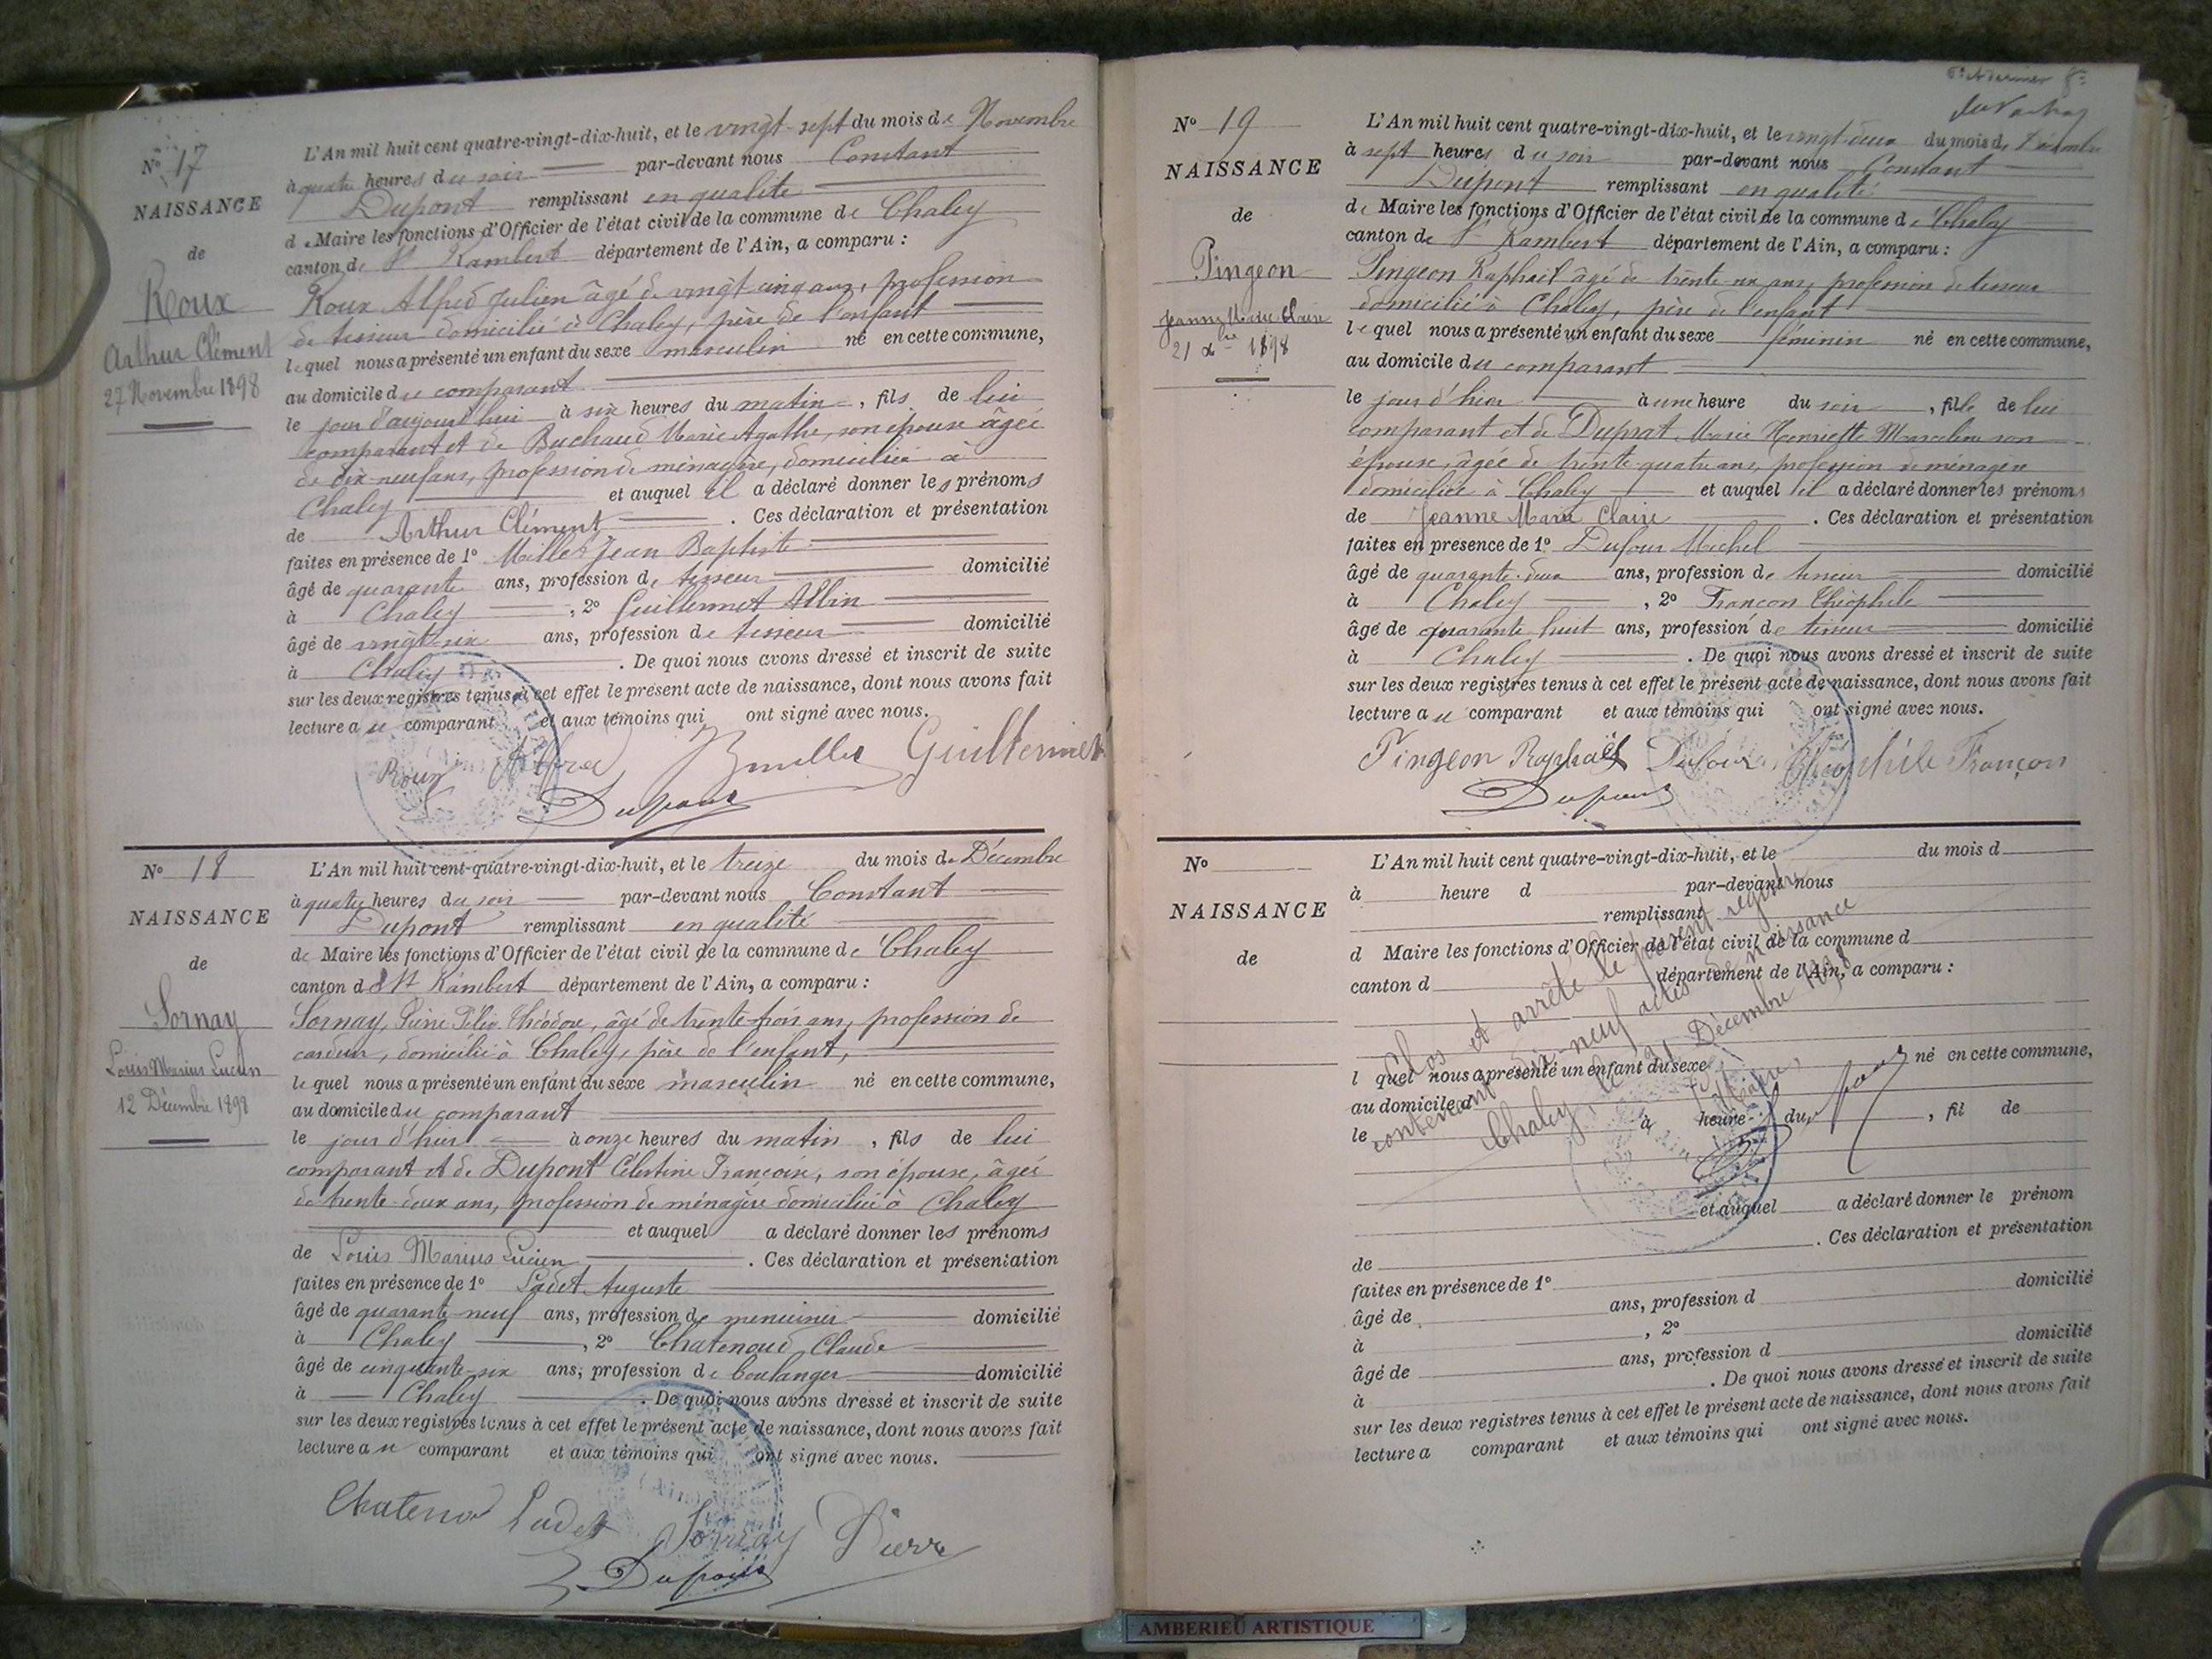 N° 17
NAISSANCE
de
Roux
Arthur Clément
27 Novembre 1898
L'An mil huit cent quatre-vingt-dix-huit, et le vingt-sept du mois de Novembre
à quatre heures du soir par-devant nous Constant
Dupont remplissant en qualité
de Maire les fonctions d'Officier de l'état civil de la commune de Chaley
canton de St Rambert département de l'Ain, a comparu :
Roux Alfred Julien âgé de vingt cinq ans, profession
de tisseur domicilié à Chaley, père de l'enfant
lequel nous a présenté un enfant du sexe masculin né en cette commune,
au domicile du comparant
le jour d'aujourd'hui à six heures du matin, fils de lui
comparant et de Buchaud Marie Agathe, son épouse âgée
de dix-neuf ans, profession de ménagère, domiciliée à
Chaley et auquel il a déclaré donner les prénoms
de Arthur Clément . Ces déclaration et présentation
faites en présence de 1° Millet Jean Baptiste
âgé de quarante ans, profession de tisseur domicilié
à Chaley , 2° Guillermet Albin
âgé de vingt six ans, profession de tisseur domicilié
à Chaley . De quoi nous avons dressé et inscrit de suite
sur les deux registres tenus à cet effet le présent acte de naissance, dont nous avons fait
lecture au comparant et aux témoins qui ont signé avec nous.
Roux Alfred Guillermet
Dupont
N° 18
NAISSANCE
de
Sornay
Louis Marius Lucien
12 Décembre 1898
L'An mil huit cent-quatre-vingt-dix-huit, et le treize du mois de Décembre
à quatre heures du soir par-devant nous Constant
Dupont remplissant en qualité
de Maire les fonctions d'Officier de l'état civil de la commune de Chaley
canton d St Rambert département de l'Ain, a comparu :
Sornay, Théodore, âgé de trente-trois ans, profession de
cardeur, domicilié à Chaley, père de l'enfant,
lequel nous a présenté un enfant du sexe masculin né en cette commune,
au domicile du comparant
le jour d'hier à onze heures du matin , fils de lui
comparant et de Dupont Célestine Françoise, son épouse, âgée
de trente-deux ans, profession de ménagère domiciliée à Chaley
et auquel a déclaré donner les prénoms
de Louis Marius Lucien . Ces déclaration et présentation
faites en présence de 1° Ladet Auguste
âgé de quarante-neuf ans, profession de menuisier domicilié
à Chaley , 2° Chatenoud Claude
âgé de cinquante-six ans, profession de boulanger domicilié
à Chaley . De quoi nous avons dressé et inscrit de suite
sur les deux registres tenus à cet effet le présent acte de naissance, dont nous avons fait
lecture au comparant et aux témoins qui ont signé avec nous.
Ladet Sornay Pierre
Dupont
N° 19
NAISSANCE
de
Pingeon
Jeanne Marie Claire
21 Xbre 1898
L'An mil huit cent quatre-vingt-dix-huit, et le vingt-deux du mois de Décembre
à sept heures du soir par-devant nous Constant
Dupont remplissant en qualité
de Maire les fonctions d'Officier de l'état civil de la commune de Chaley
canton de St Rambert département de l'Ain, a comparu :
Pingeon Raphaël âgé de trente un ans, profession de tisseur
domicilié à Chaley, père de l'enfant
lequel nous a présenté un enfant du sexe féminin né en cette commune,
au domicile du comparant
le jour d'hier à une heure du soir , fille de lui
comparant et de Duprat Marie Henriette Marceline son
épouse, âgée de trente-quatre ans, profession de ménagère
domiciliée à Chaley et auquel il a déclaré donner les prénoms
de Jeanne Marie Claire . Ces déclaration et présentation
faites en présence de 1° Dufour Michel
âgé de quarante-deux ans, profession de tisseur domicilié
à Chaley , 2° Françon Théophile
âgé de quarante huit ans, profession de tisseur domicilié
à Chaley . De quoi nous avons dressé et inscrit de suite
sur les deux registres tenus à cet effet le présent acte de naissance, dont nous avons fait
lecture au comparant et aux témoins qui ont signé avec nous.
Pingeon Raphaël Dufour Théophile Françon
Dupont
N°
NAISSANCE
de
L'An mil huit cent quatre-vingt-dix-huit, et le du mois d
à heure d par-devant nous
remplissant
d Maire les fonctions d'Officier de l'état civil de la commune d
canton d département de l'Ain, a comparu :
l quel nous a présenté un enfant du sexe né en cette commune,
au domicile d
le à heure du , fil de
et auquel a déclaré donner le prénom
de . Ces déclaration et présentation
faites en présence de 1°
âgé de ans, profession d domicilié
à , 2°
âgé de ans, profession d domicilié
à . De quoi nous avons dressé et inscrit de suite
sur les deux registres tenus à cet effet le présent acte de naissance, dont nous avons fait
lecture a comparant et aux témoins qui ont signé avec nous.
Clos et arrêté le présent registre
contenant dix-neuf actes de naissance
Chaley le 31 Décembre 1898
Le Maire,
AMBERIEU ARTISTIQUE